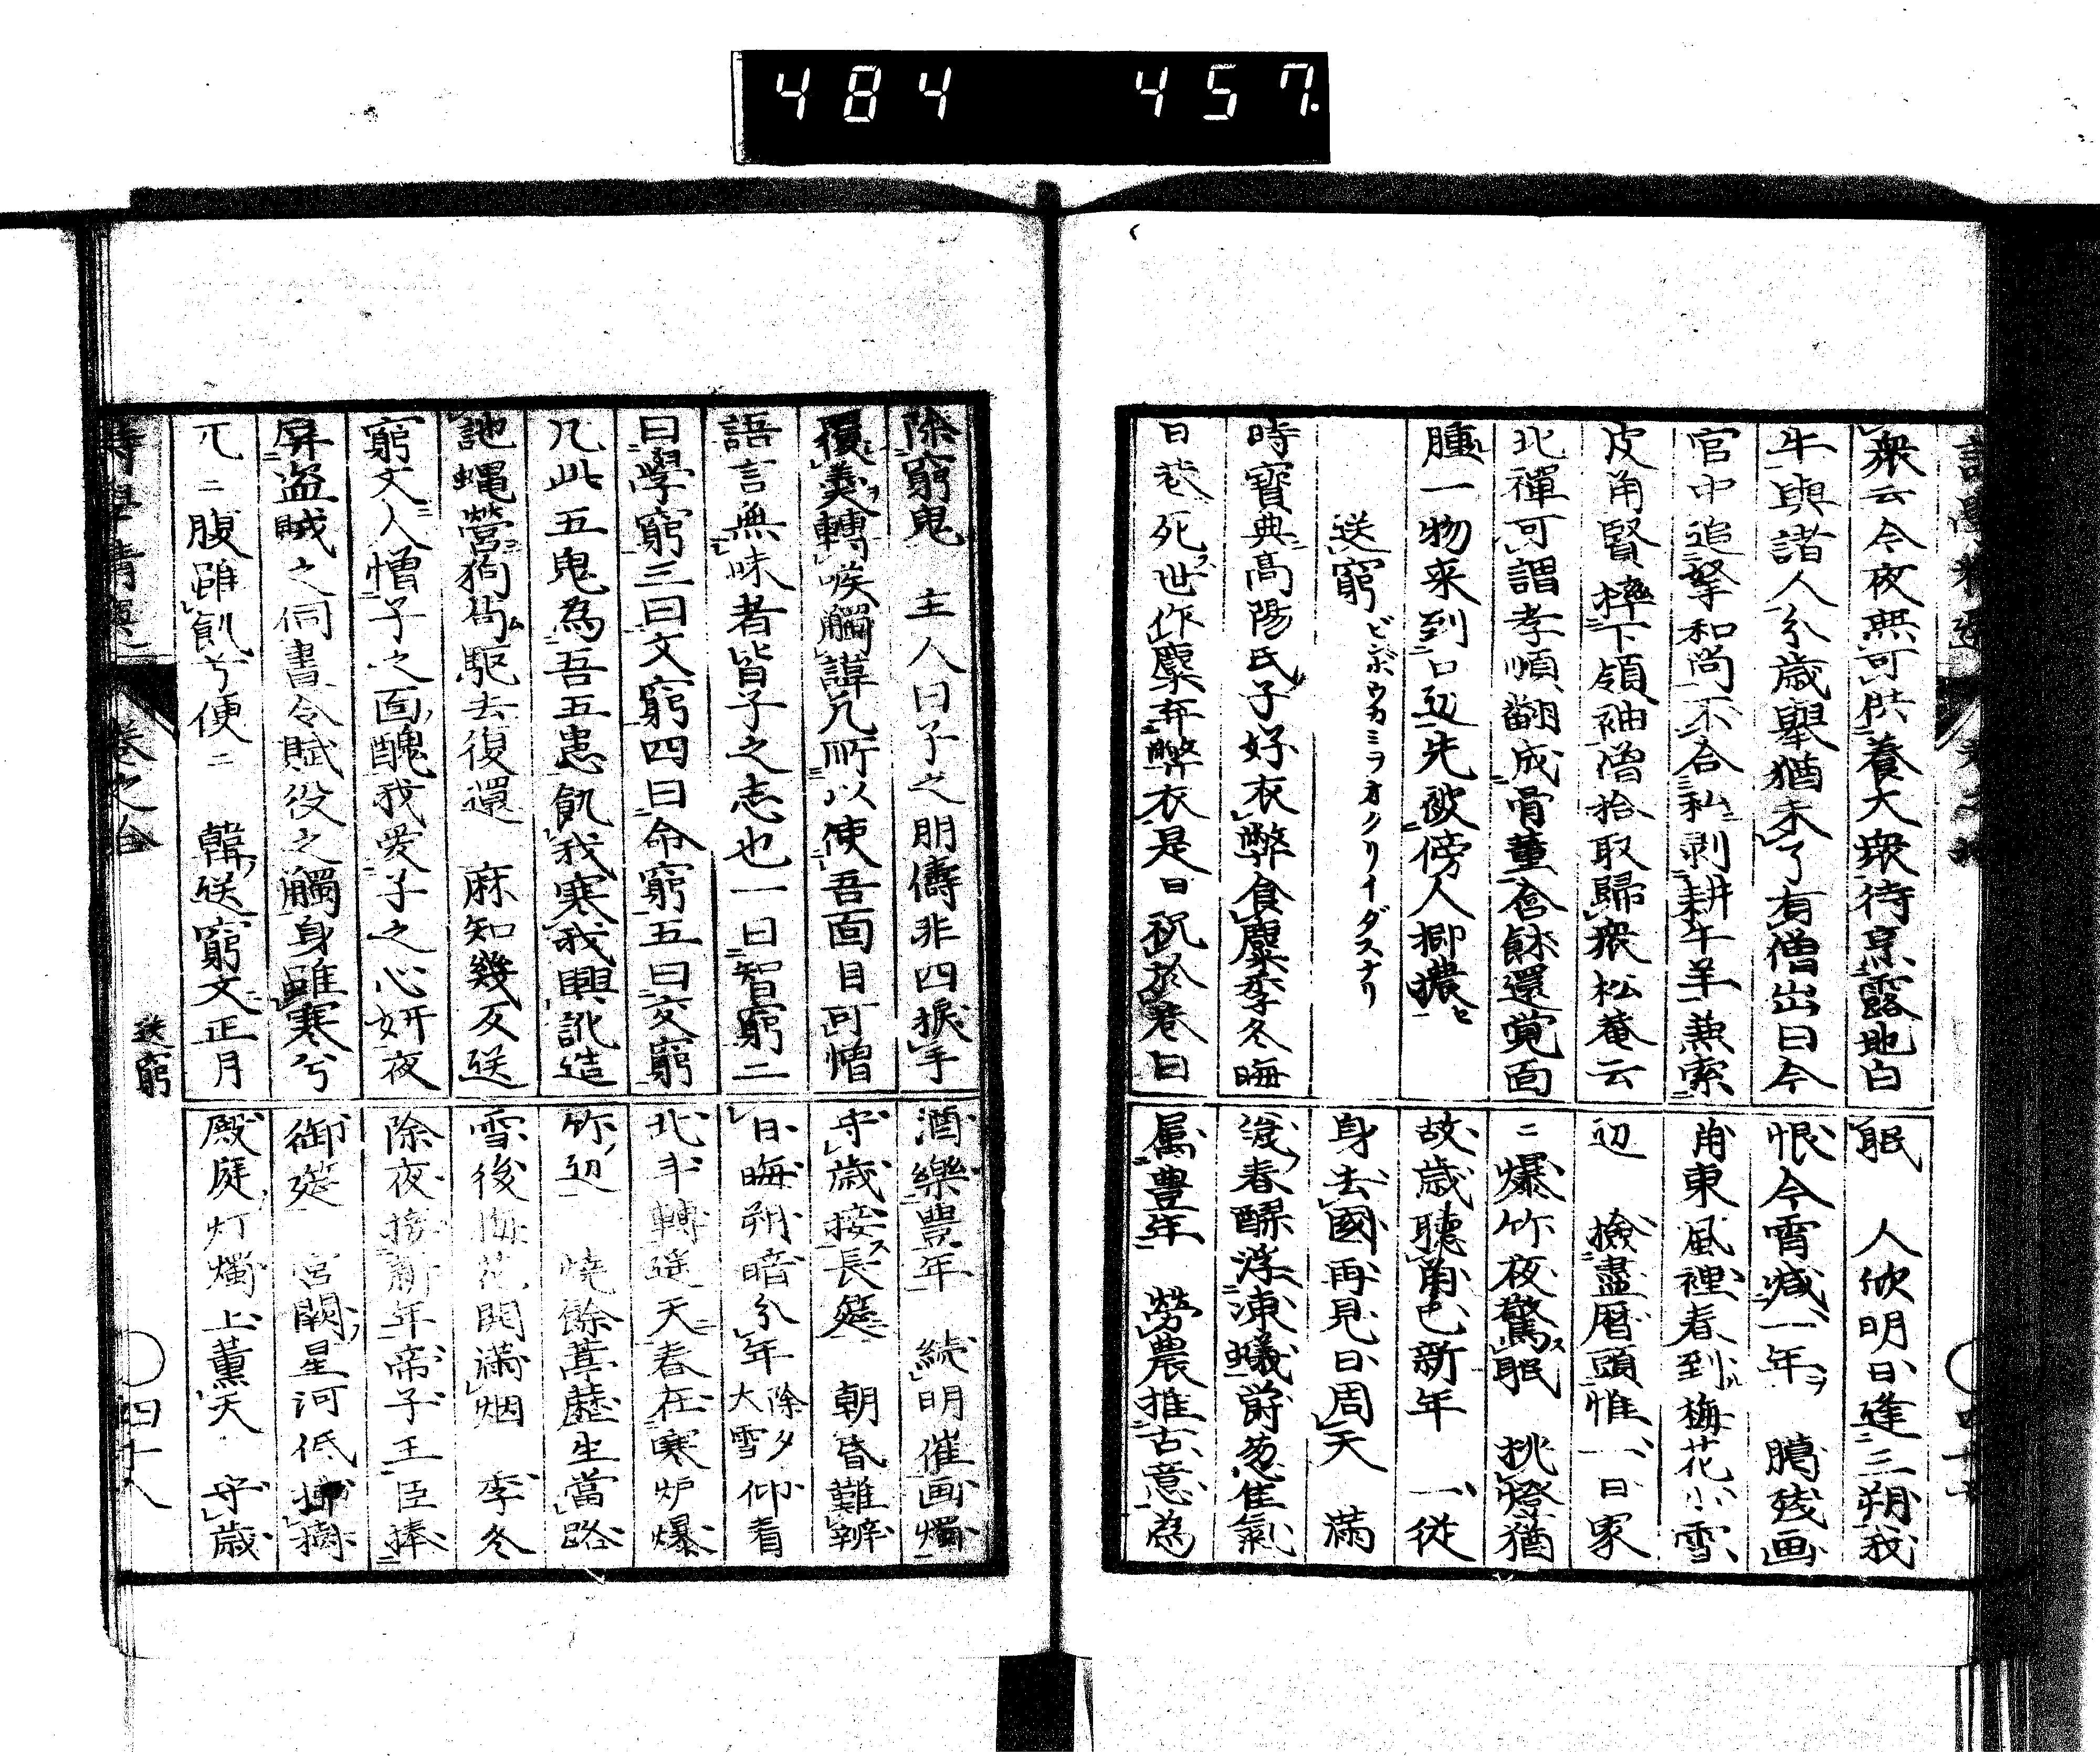 484 457.
衆云今夜無可供養大衆待烹露地白
牛與諸人分歳舉猶未了有僧出曰今
官中追擊和尚不合私剥耕牛羊兼索
皮角賢摔下領袖僧拾取歸衆松菴云
北禪可謂孝順翻成骨董含飴還覚面
腫一物来到口边先被傍人揶擾
送窮 ビンボウカミヲオクリイダスナリ
時寶典高陽氏子好衣弊食麋季冬晦
日巷死世作麋弃弊衣是日祝於巷曰
眠 人欣明日逢三朔我
恨今宵减一年 臈残画
角東風裡春到梅花小雪
边 撿盡暦頭惟一日家
ニ爆竹夜驚眠 挑燈猶
故歳聽角已新年 一従
身去國再見日周天 満
浅春醪浮凍蟻爵忽隹氣
属豊年 勞農推古意為
除窮鬼 主人曰子之朋儔非四捩手
覆羹轉喉觸諱凡所以使吾面目可憎
語言無味者皆子之志也一曰智窮二
曰學窮三曰文窮四曰命窮五曰交窮
凡此五鬼為吾五患飢我寒我興訛造
訑蝿營狗苟駆去復還 麻知幾反送
窮文人憎子之面醜我愛子之心妍夜
屏盗賊之伺書令賦役之觸身雖寒兮
兀ニ腹雖飢兮便ニ 韓送窮文正月
酒樂豊年 続明催画燭
守歳接長筵 朝昏難辨
日晦朔暗分年 除夕大雪 仰看
北斗轉遥天春在寒炉爆
竹边 焼餘蒿藜生當路
雪後梅花開満烟 季冬
除夜接新年帝子王臣捧
御筵 宮闕星河低拂樹
殿庭灯燭上薫天 守歳
巻之
送窮
四十八